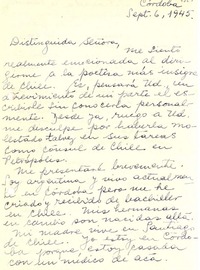 Córdoba
Sept. 6, 1945.
Distinguida Señora,
Me siento
realmente emocionada al diri-
girme a la poetisa más insigne
de Chile. Es, pensará Ud, un
atrevimiento de mi parte el es-
cribirle sin conocerla personal-
mente. Desde ya, ruego a Ud.
me disculpe por haberla mo-
lestado tanto, en sus tareas
como cónsul de Chile en
Petrópolis.
Me presentaré brevemente:
Soy argentina y vivo actualmen-
te en Córdoba pero me he
criado y recibido de bachiller
en Chile. Mis hermanas
en cambio son nacidas allá.
Mi madre vive en Santiago
de Chile. Yo estoy en Córdo-
ba porque estoy casada
con un médico de acá.